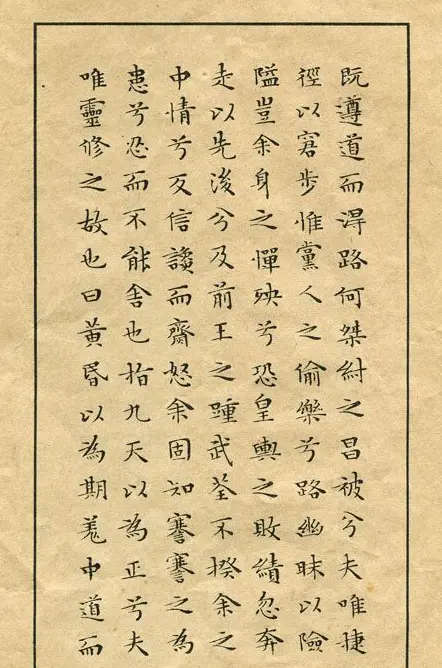 既遵道而得路何桀紂之昌被兮夫唯捷
徑以窘步惟黨人之偷樂兮路幽昧以險
隘豈余身之憚殃兮恐皇輿之敗績忽奔
走以先後兮及前王之踵武荃不揆余之
中情兮反信讒而齋怒余固知謇謇之為
患兮忍而不能舍也指九天以為正兮夫
唯靈修之故也曰黃昏以為期羌中道而